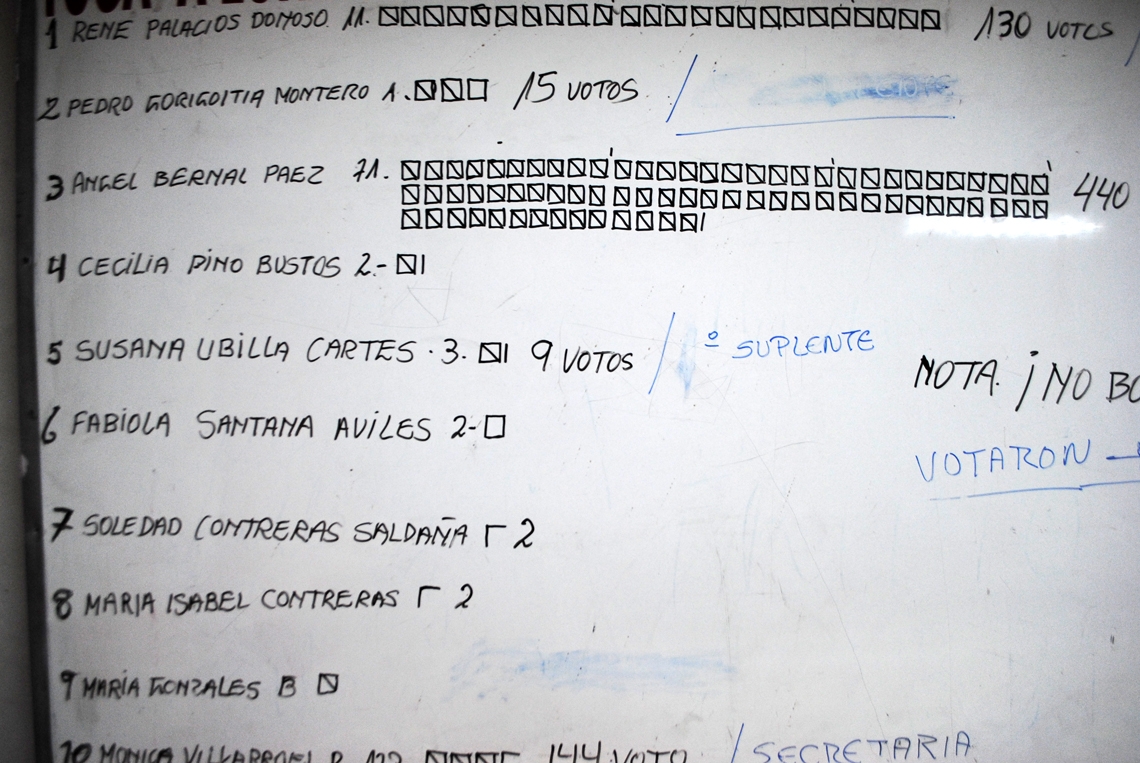 1 RENE PALACIOS DONOSO 11. 130 VOTOS
2 PEDRO GORIGOITIA MONTERO 1. 15 VOTOS
3 ANGEL BERNAL PAEZ 71. 440
4 CECILIA PINO BUSTOS 2.-
5 SUSANA UBILLA CARTES . 3. 9 VOTOS / 1º SUPLENTE
NOTA. ¡NO
6 FABIOLA SANTANA AVILES 2-
VOTARON
7 SOLEDAD CONTRERAS SALDAÑA 2
8 MARIA ISABEL CONTRERAS 2
9 MARÍA GONZALES B
10 MONICA 144 VOTO / SECRETARIA